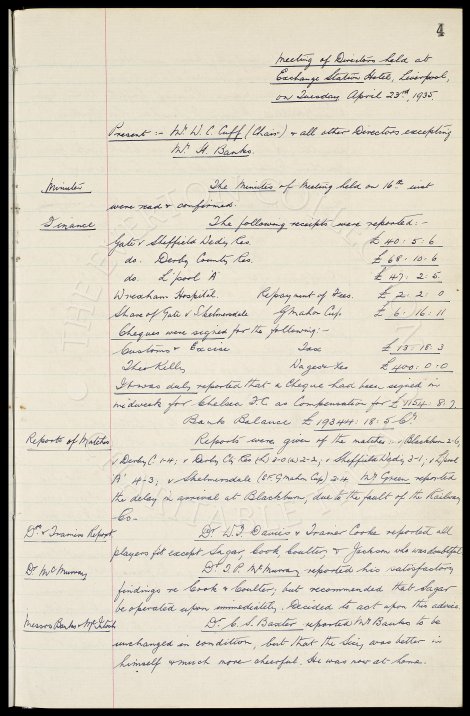 4
Meeting of Directors held at
Exchange Station Hotel, Liverpool,
on Tuesday April 23rd, 1935.
Present :- Mr. W. C. Cuff (Chair) & all other Directors excepting
Mr. H. Banks.
Minutes The Minutes of Meeting held on 16th inst
were read & confirmed.
Finance The following receipts were reported :-
Gate v Sheffield Wedy Res. £ 40 : 5 : 6
do. Derby County Res. £ 68 : 10 : 6
do. L'pool 'A' £ 47 : 2 : 5
Wrexham Hospital. Repayment of Fees. £ 2 : 2 : 0
Share of Gate v Skelmersdale G Mahon Cup. £ 6 : 16 : 11
Cheques were signed for the following :-
Customs & Excise Tax £ 13 : 18 : 3
Theo Kelly Wages & Xes £ 400 : 0 : 0
It was duly reported that a Cheque had been signed in
midweek for Chelsea F C as Compensation for £ 1154 : 8 : 7.
Bank Balance £ 19344 : 18 : 5 Cr
Reports of Matches Reports were given of the matches :- v Blackburn 2-6,
v Derby C. 1-4; v Derby Cty Res (h) 2-0 (a) 2-2; v Sheffield Wedy 3-1; v L'pool
'A' 4-3; v Skelmersdale (SF G Mahon Cup) 2-4. Mr Green reported
the delay in arrival at Blackburn, due to the fault of the Railway
Co.
Drs. & Trainers Report Dr. W. J. Davies & Trainer Cooke reported all
players fit except Sagar, Cook, Coulter, & Jackson who was doubtful
Dr McMurray Dr. T. P. McMurray reported his satisfactory
findings re Cook & Coulter; but recommended that Sagar
be operated upon immediately. Decided to act upon this advice.
Messrs Banks & McIntosh Dr. C. S. Baxter reported Mr Banks to be
unchanged in condition, but that the Secy was better in
himself & much more cheerful. He was now at home.